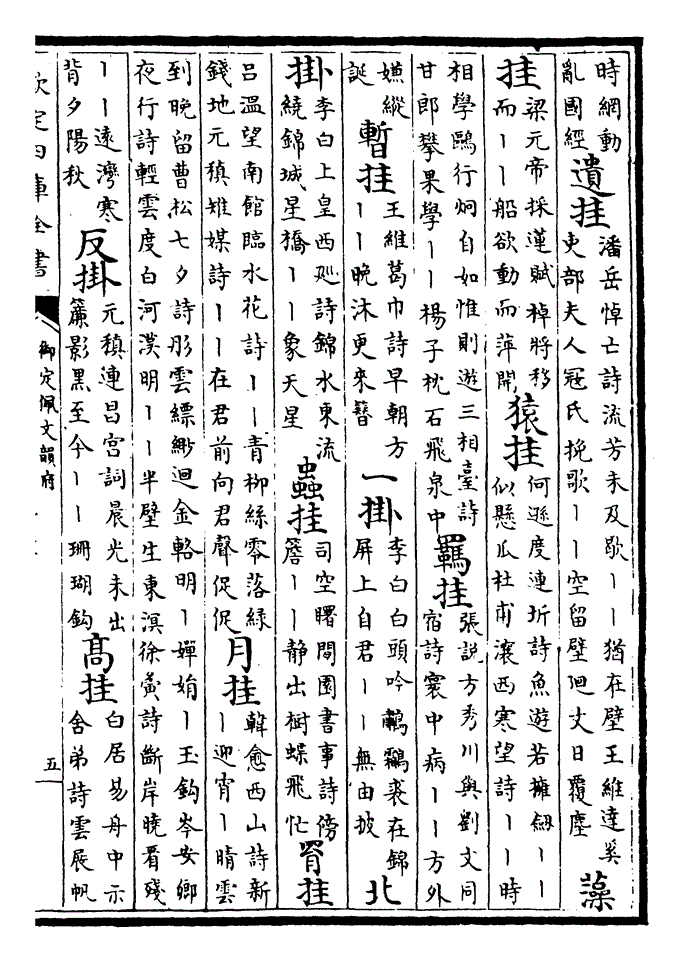 時網動
亂國經
遺挂
潘岳悼亡詩流芳未及歇丨丨猶在壁王維達奚
吏部夫人冦氏挽歌丨丨空留壁廻文日覆塵
藻
挂
梁元帝採蓮賦棹將移
而丨丨船欲動而萍開
猿挂
何遜度連圻詩魚遊若擁劔丨丨
似懸瓜杜甫瀼西寒望詩丨丨時
相學鷗行炯自如惟則遊三相臺詩
甘郎攀果學丨丨楊子枕石飛泉中
羈挂
張說方秀川與劉文同
宿詩寰中病丨丨方外
嫌縱
誕
暫挂
王維葛巾詩早朝方
丨丨晚沐更來簪
一掛
李白白頭吟鷫鸘裘在錦
屏上自君丨丨無由披
北
掛
李白上皇西廵詩錦水東流
繞錦城星橋丨丨象天星
蟲挂
司空曙閒園書事詩傍
簷丨丨静出樹蝶飛忙
罥挂
吕溫望南館臨水花詩丨丨青柳絲零落緑
錢地元稹雉媒詩丨丨在君前向君聲促促
月挂
韓愈西山詩新
丨迎宵丨晴雲
到晚留曹松七夕詩彤雲縹緲迴金輅明丨嬋娟丨玉鈎岑安卿
夜行詩輕雲度白河漢明丨丨半壁生東溟徐夤詩斷岸曉看殘
丨丨逺灣寒
背夕陽秋
反掛
元稹連昌宫詞晨光未出
簾影黒至今丨丨珊瑚鈎
髙挂
白居易舟中示
舍弟詩雲展帆
欽定四庫全書
御定佩文韻府
五